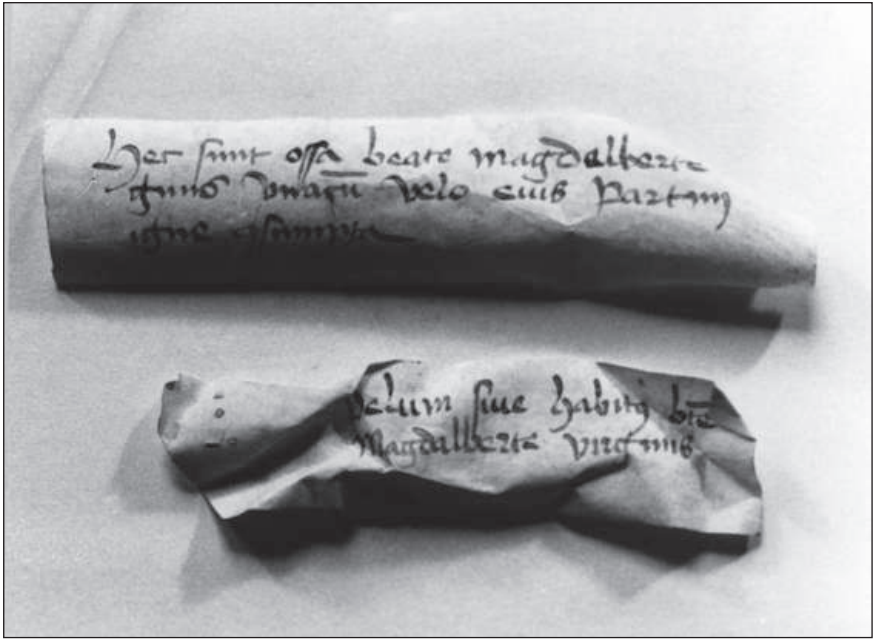 Hec sunt ossa beate magdalberte
ginis vnacū velo eius Partim
igne ꝯsumpta
velum siue habitꝰ bt̄e
Magdalberte virginis